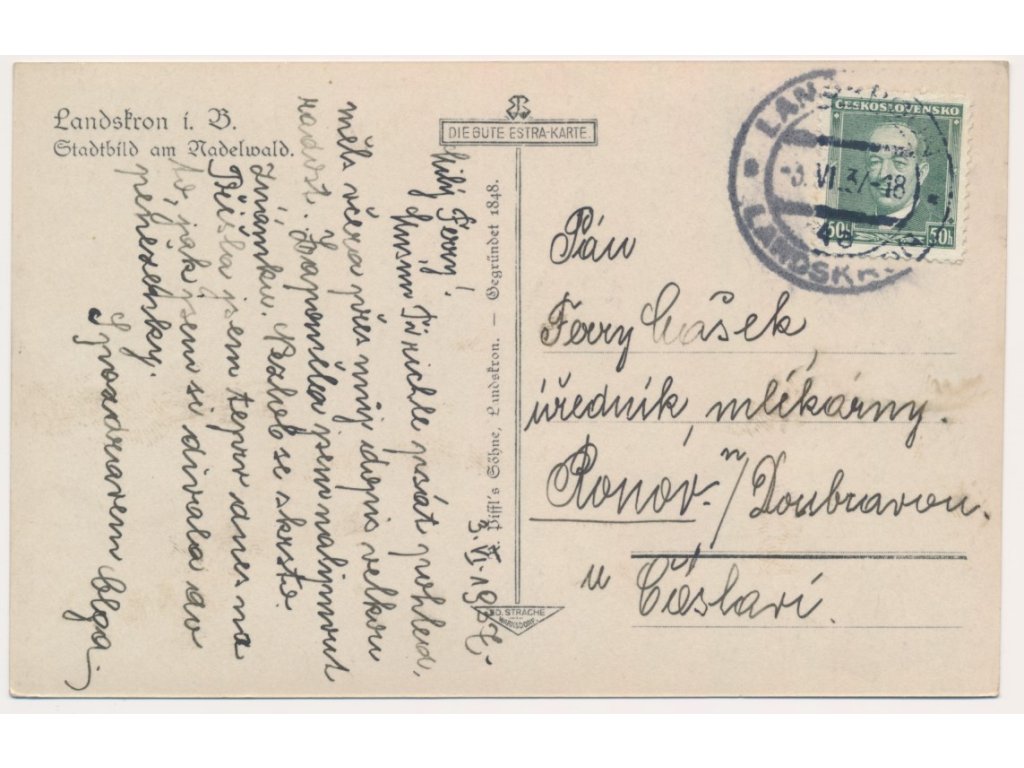 Landskron i. B.
Stadtbild am Nadelwald.
DIE GUTE ESTRA-KARTE
ČESKOSLOVENSKO
50h 50h
LANDSKR
VI. 37-18
LANDSKR
Pán
Ferry Mášek
úředník mlékárny.
Ronov n/Doubravou.
u Čáslavi.
3. VI. 1937.
Milý Ferry!
Musím Ti rychle psát pohled,
měls včera přes můj dopis velkou
radost. Zapoměla jsem nalepnout
známku. Nezlob se skrste.
Přišla jsem teprv dnes na
to, jak jsem si dívala do
peněženky.
S pozdravem Olga.
Piffl's Söhne, Landskron. — Gegründet 1848.
ED. STRACHE
WARNSDORF.